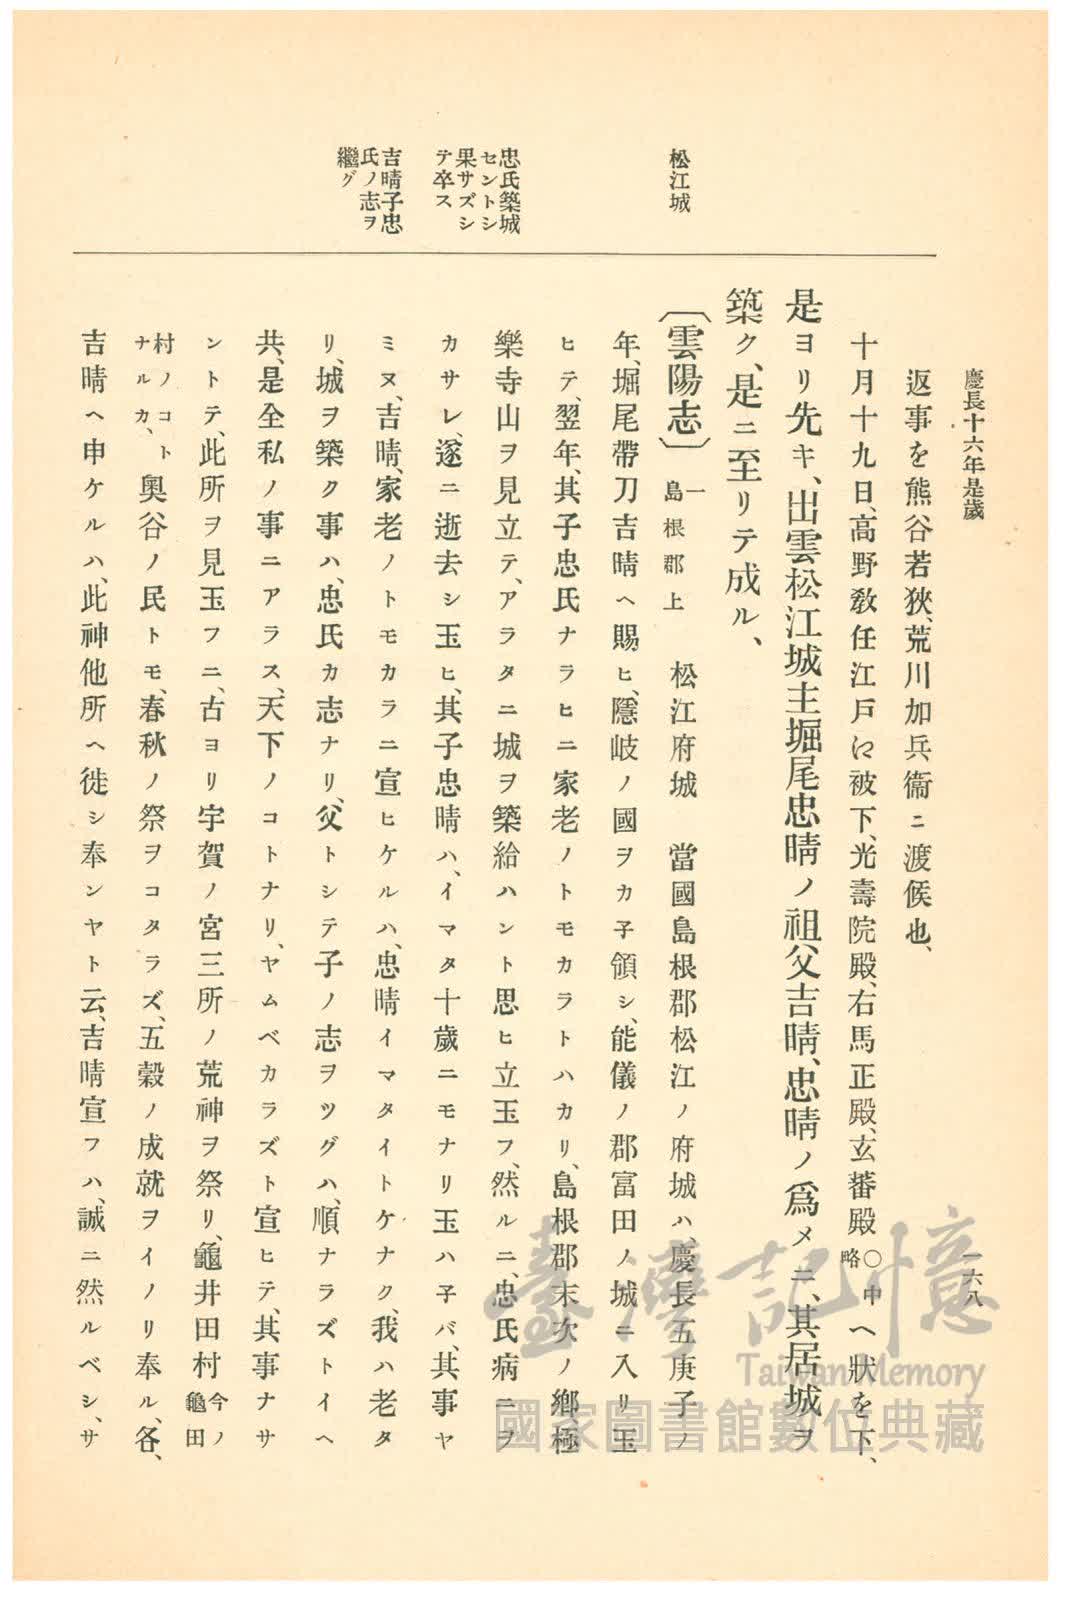 慶長十六年是歲
一六八
返事を熊谷若狹、荒川加兵衞ニ渡候也、
十月十九日、高野教任江戸に被下、光壽院殿、右馬正殿、玄蕃殿〇中略へ狀を下、
是ヨリ先キ、出雲松江城主堀尾忠晴ノ祖父吉晴、忠晴ノ爲メニ、其居城ヲ
築ク、是ニ至リテ成ル、
松江城
〔雲陽志〕一島根郡上 松江府城 當國島根郡松江ノ府城ハ、慶長五庚子ノ
年、堀尾帶刀吉晴ヘ賜ヒ、隱岐ノ國ヲカ子領シ、能儀ノ郡富田ノ城ニ入リ玉
ヒテ、翌年、其子忠氏ナラヒニ家老ノトモカラトハカリ、島根郡末次ノ鄕極
忠氏築城セントシ果サズシテ卒ス
樂寺山ヲ見立テ、アラタニ城ヲ築給ハント思ヒ立玉フ、然ルニ、忠氏病ニヲ
カサレ、遂ニ逝去シ玉ヒ、其子忠晴ハ、イマタ十歲ニモナリ玉ハ子バ、其事ヤ
吉晴子忠氏ノ志ヲ繼グ
ミヌ、吉晴、家老ノトモカラニ宣ヒケルハ、忠晴イマタイトケナク、我ハ老タ
リ、城ヲ築ク事ハ、忠氏カ志ナリ、父トシテ子ノ志ヲツグハ、順ナラズトイヘ
共、是全私ノ事ニアラス、天下ノコトナリ、ヤムベカラズト宣ヒテ、其事ナサ
ントテ、此所ヲ見玉フニ、古ヨリ宇賀ノ宮三所ノ荒神ヲ祭リ、龜井田村今ノ龜田
村ノコトナルカ、奧谷ノ民トモ、春秋ノ祭ヲコタラズ、五穀ノ成就ヲイノリ奉ル、各、
吉晴ヘ申ケルハ、此神他所ヘ徙シ奉ンヤト云、吉晴宣フハ、誠ニ然ルベシ、サ
臺灣記憶
Taiwan Memory
國家圖書館數位典藏